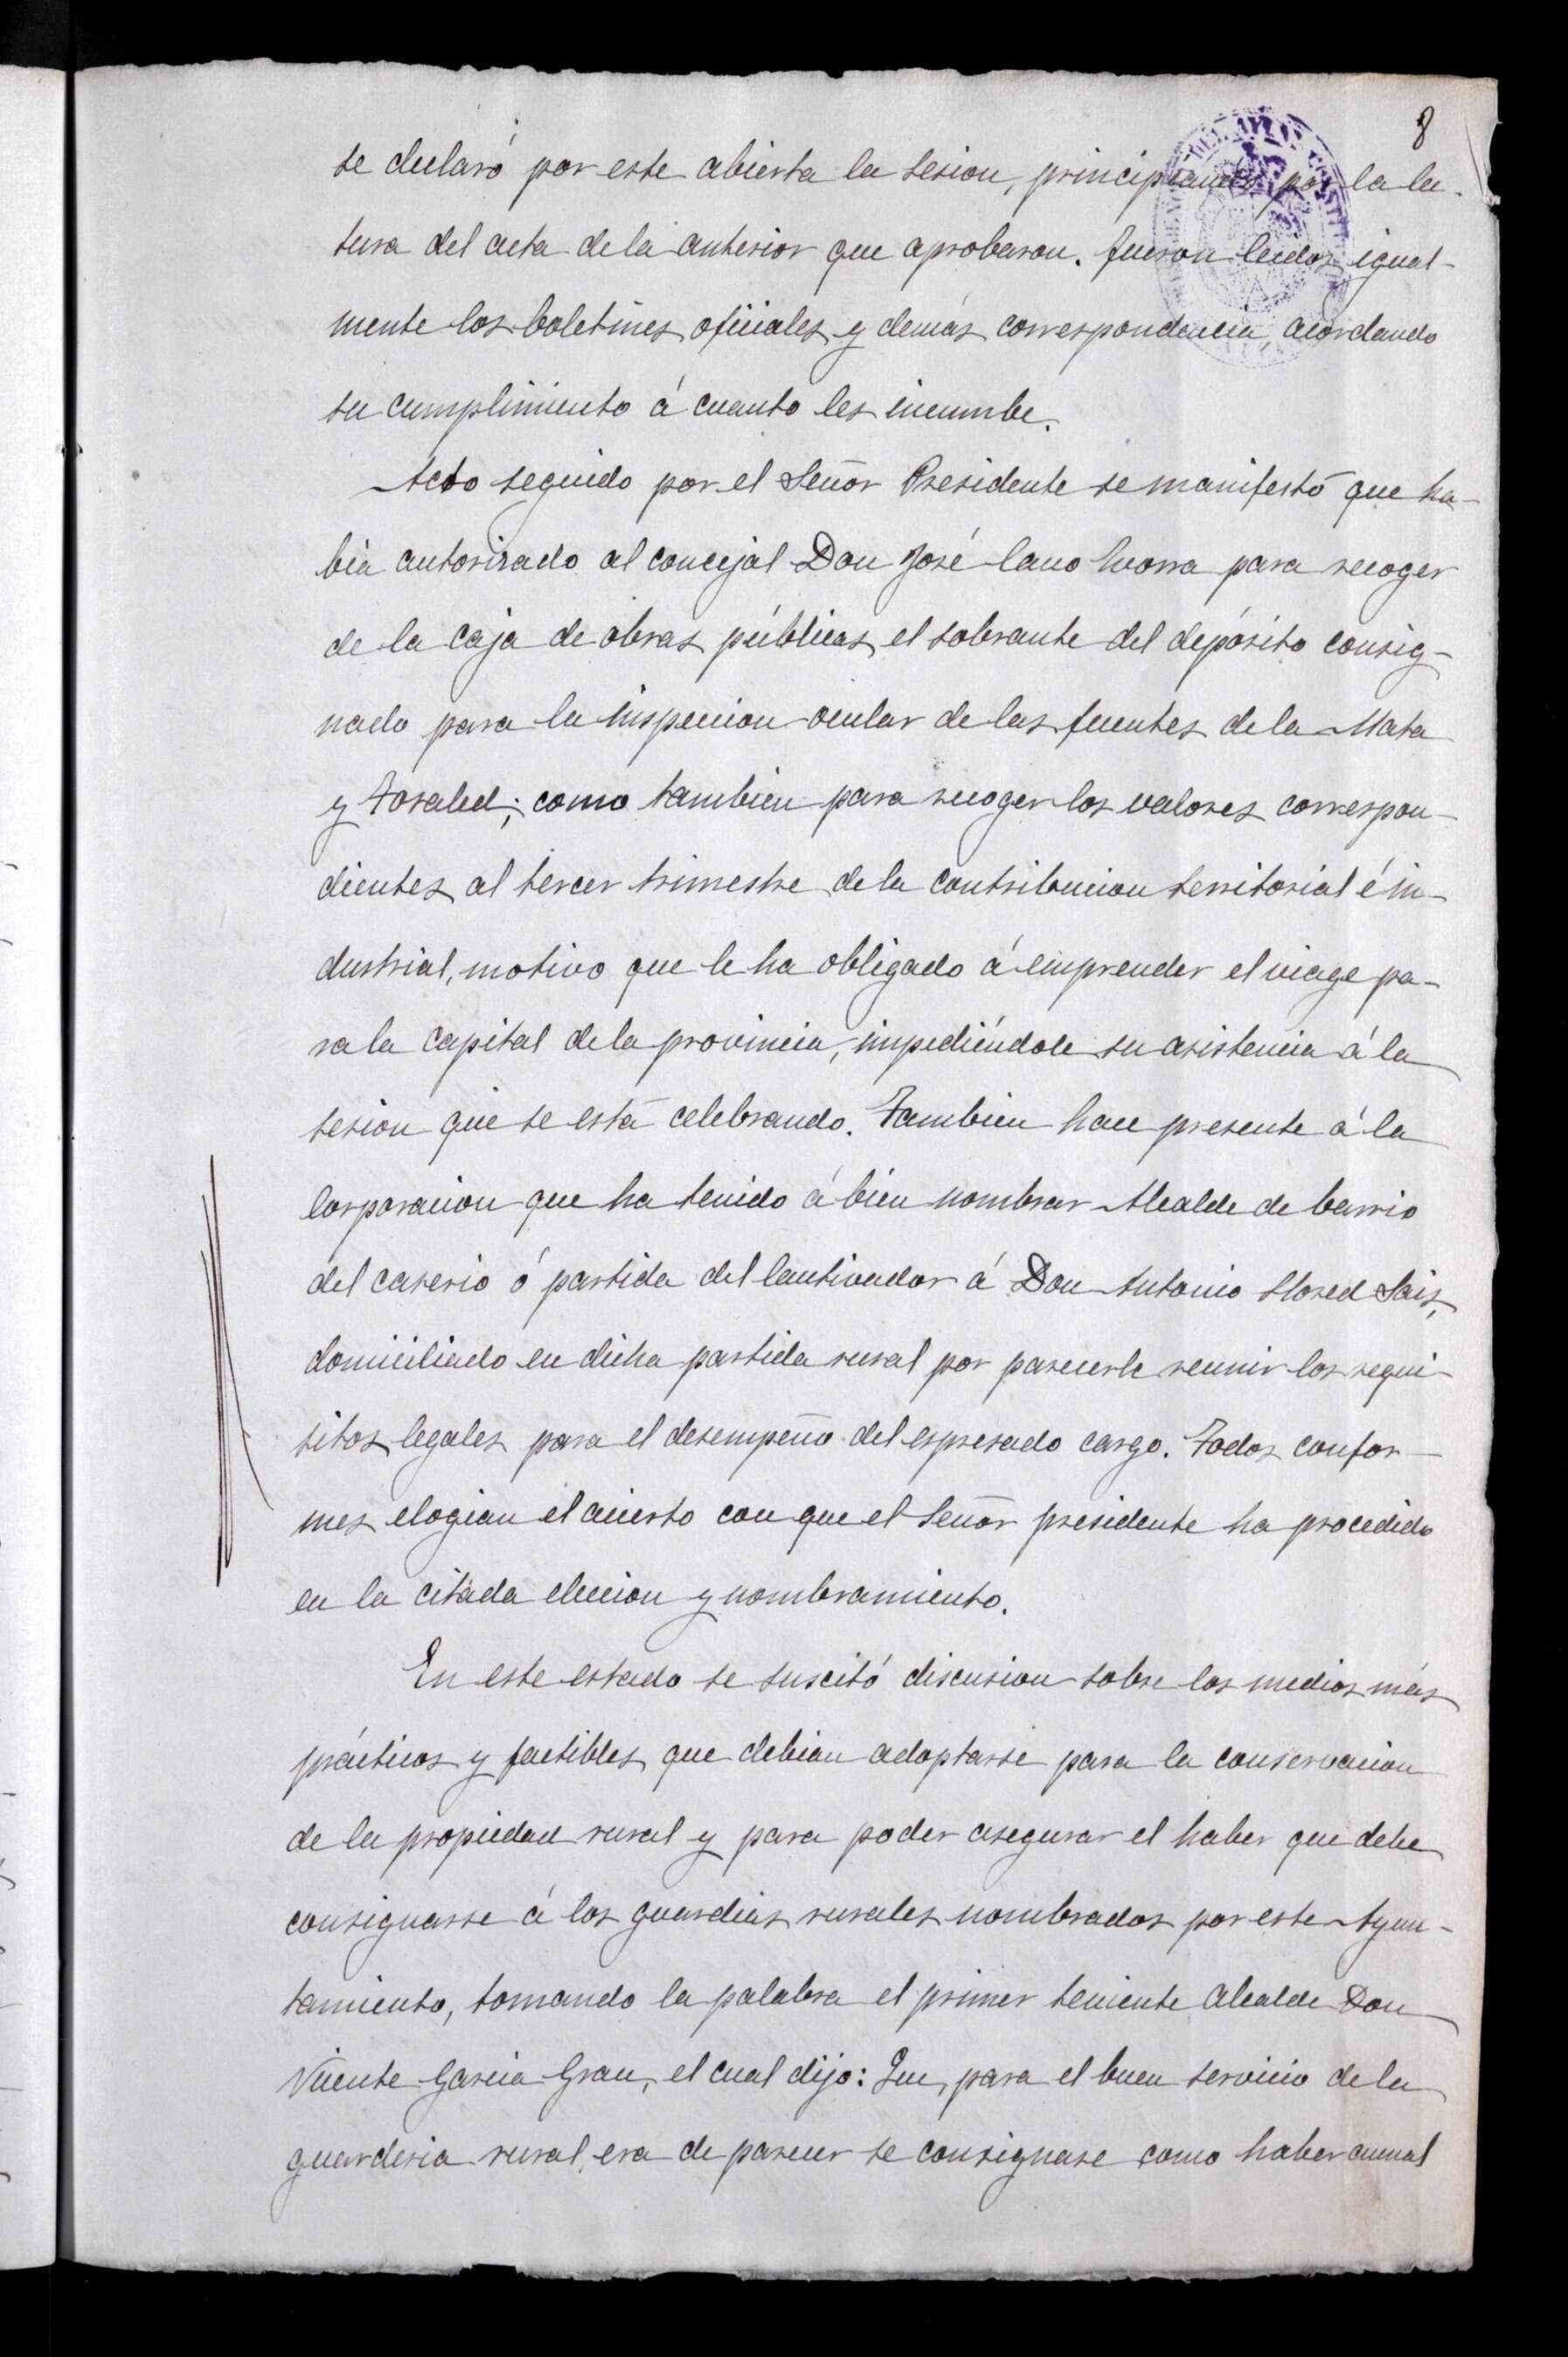 8
se declaró por este abierta la sesion, principiando por la lec-
tura del acta de la anterior que aprobaron. fueron leidos igual-
mente los boletines oficiales y demás correspondencia, acordando
su cumplimiento á cuanto les incumbe.
Acto seguido por el Señor Presidente se manifestó que ha-
bia autorizado al concejal Don José Cano Luorra para recoger
de la caja de obras públicas el sobrante del depósito consig-
nado para la inspeccion ocular de las fuentes de la Mata
y Tosalet; como tambien para recoger los valores correspon-
dientes al tercer trimestre de la contribucion territorial é in-
dustrial, motivo que le ha obligado á emprender el viage pa-
ra la capital de la provincia, impediéndole su asistencia á la
sesion que se está celebrando. Tambien hace presente á la
Corporacion que ha tenido á bien nombrar Alcalde de barrio
del caserio ó partida del Cautivador á Don Antonio Llored Sais,
domiciliado en dicha partida rural por parecerle reunir los requi-
sitos legales para el desempeño del espresado cargo. Todos confor-
mes elogian el acierto con que el Señor presidente ha procedido
en la citada eleccion y nombramiento.
En este estado se suscitó discusion sobre los medios más
prácticos y factibles que debian adoptarse para la conservacion
de la propiedad rural y para poder asegurar el haber que debe
consignarse á los guardias rurales nombrados por este Ayun-
tamiento, tomando la palabra el primer teniente Alcalde Don
Vicente Garcia Grau, el cual dijo: Que, para el buen servicio de la
guarderia rural, era de parecer se consignase como haber anual